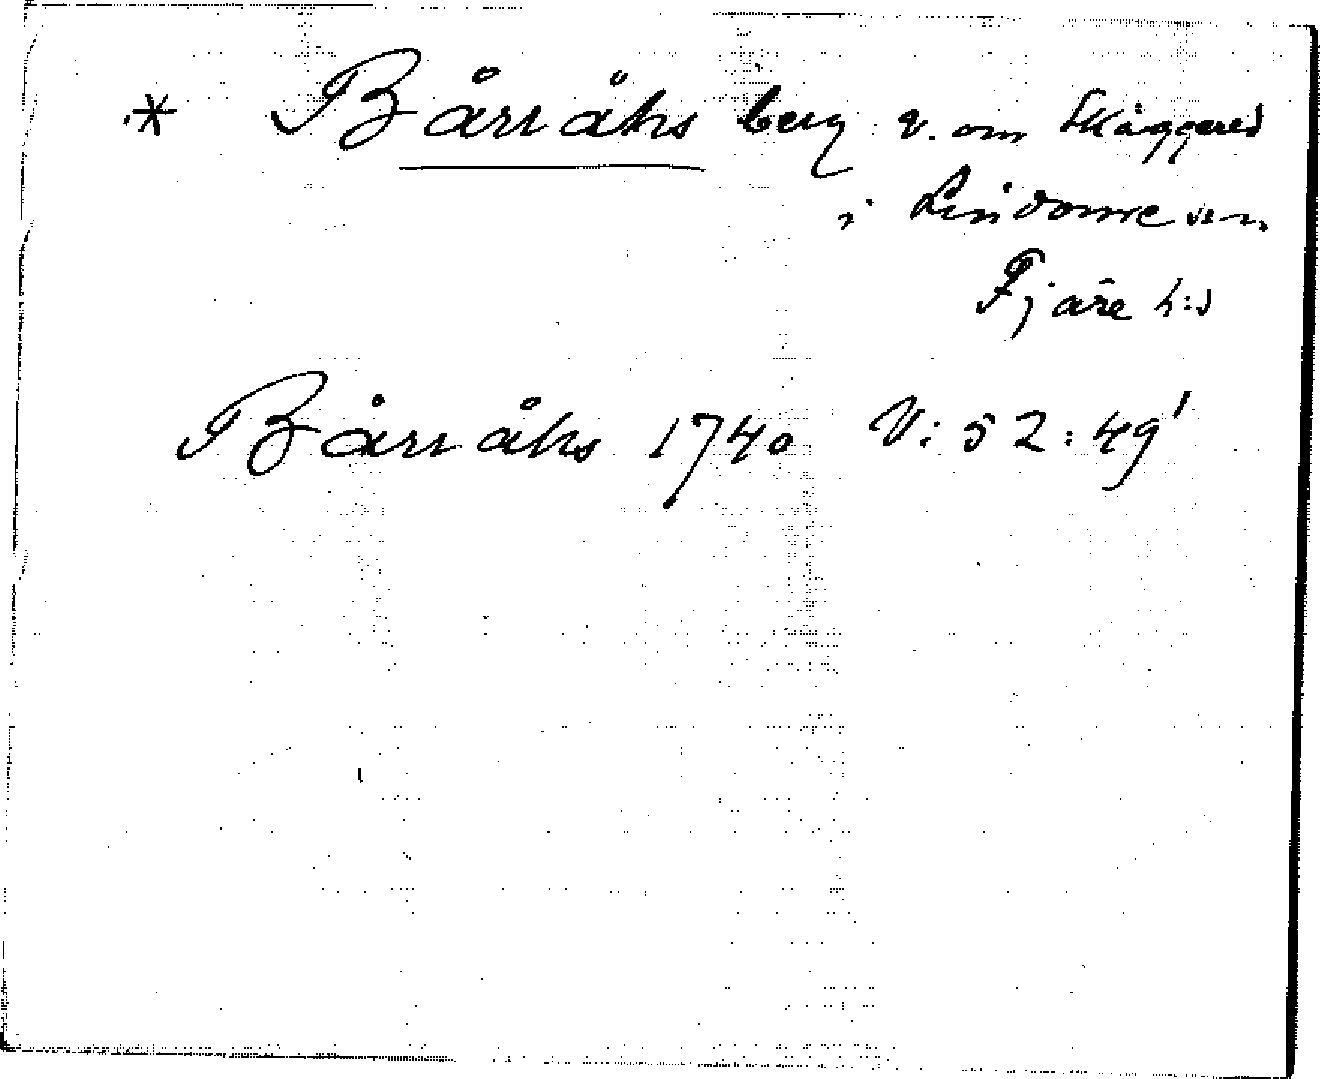 * Bårråhs berg v. om Skäggered
i Lindome sn
Fjäre h:d
Bårråhs 1740 V: 52: 49'